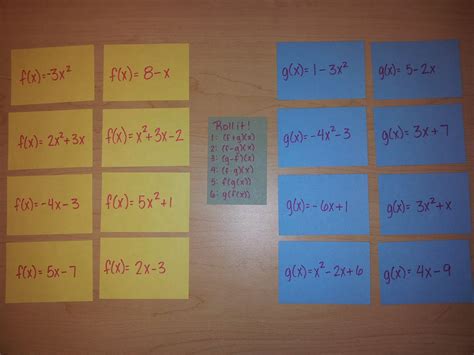 f(x)=-3x²
f(x)=8-x
f(x)=2x²+3x
f(x)=x²+3x-2
f(x)=-4x-3
f(x)=5x²+1
f(x)=5x-7
f(x)=2x-3
Roll it!
1: (f+g)(x)
2: (f-g)(x)
3: (g-f)(x)
4: (f·g)(x)
5: f(g(x))
6: g(f(x))
g(x)=1-3x²
g(x)=5-2x
g(x)=-4x²-3
g(x)=3x+7
g(x)=-6x+1
g(x)=3x²+x
g(x)=x²-2x+6
g(x)=4x-9